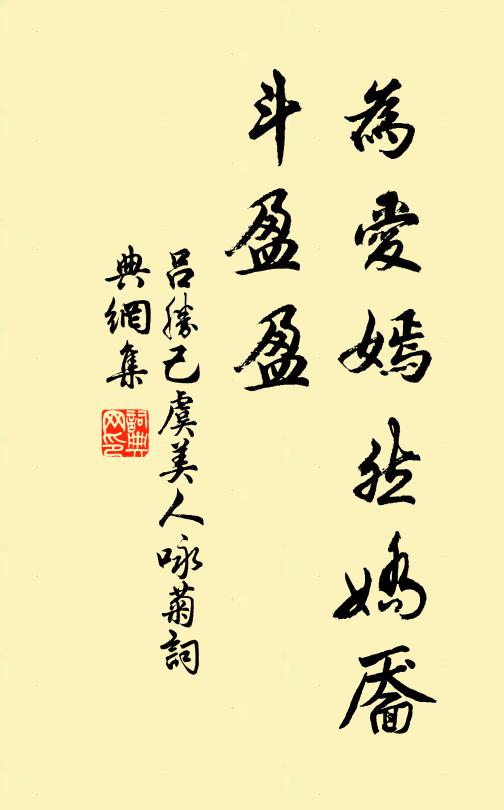 為愛嫣然嬌靨
斗盈盈
呂勝己虞美人咏菊詞
典網集
詞典網印